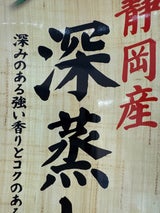 静岡産
深蒸し
深みのある強い香りとコクのある